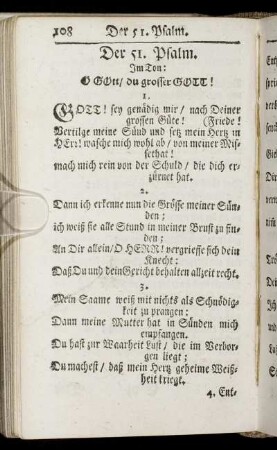 108 Der 51. Psalm.
Der 51. Psalm.
Im Ton:
O GOtt/ du grosser GOTT!
1.
GOTT! sey genädig mir/ nach Deiner
grossen Güte! (Friede!
Vertilge meine Sünd und setz mein Hertz in
HErr! wasche mich wohl ab/ von meiner Mis-
sethat!
mach mich rein von der Schuld/ die dich er-
zürnet hat.
2.
Dann ich erkenne nun die Grösse meiner Sün-
den;
ich weiß sie alle Stund in meiner Brust zu fin-
den;
An Dir allein/ O HERR! vergriesse sich dein
Knecht:
Daß Du und dein Gericht behalten allzeit recht.
3.
Mein Saame weiß mit nichts als Schnödig-
keit zu prangen;
Dann meine Mutter hat in Sünden mich
empfangen.
Du hast zur Waarheit Lust/ die im Verbor-
gen liegt;
Du machest/ daß mein Hertz geheime Weiß-
heit kriegt.
4. Ent-